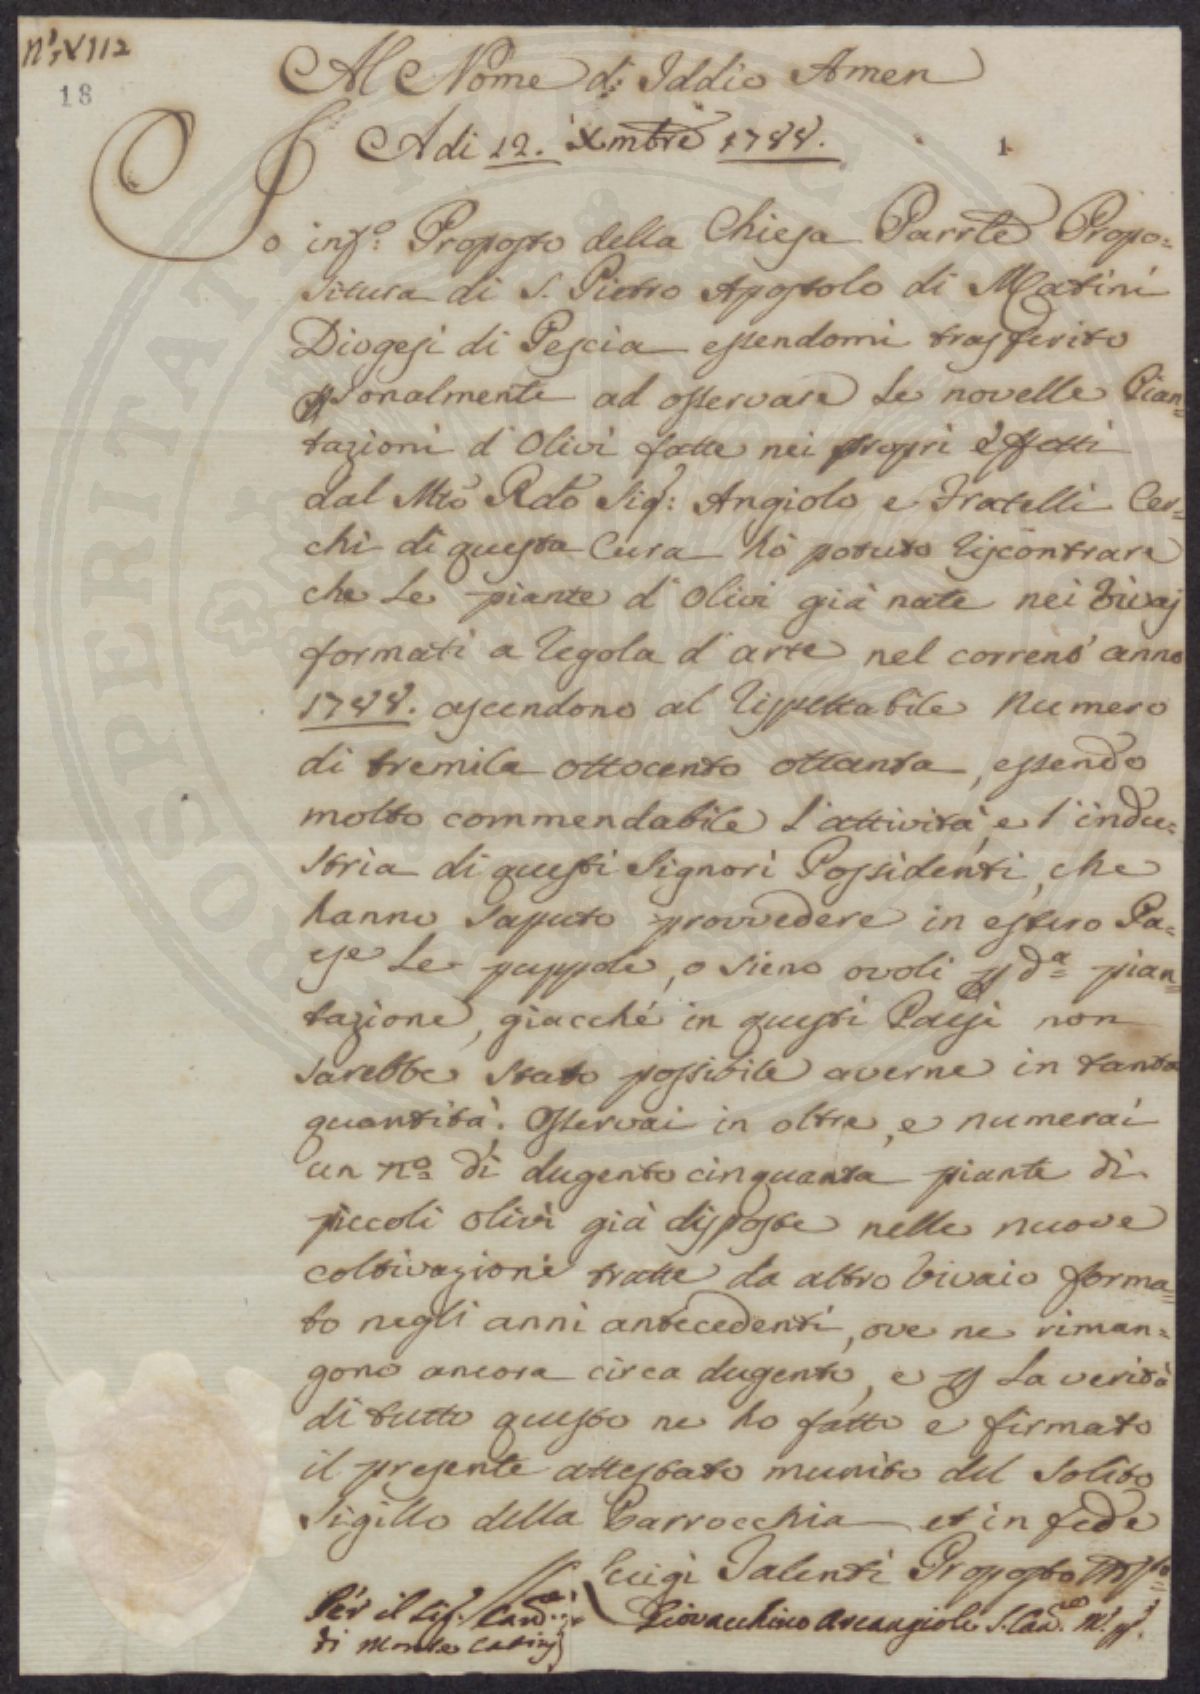 n.° XVIII2
18
Al Nome di Iddio Amen
Adi 12. Xmbre 1788.
1
Io inf.° Proposto della Chiesa Parrle Propo=
situra di S. Pietro Apostolo di Matini
Diogesi di Pescia essendomi trasferito
psonalmente ad osservare le novelle Pian=
tazioni d'Olivi fatte nei propri effetti
dal Mto Rdo Sig.: Angiolo e Fratelli Cer=
chi di questa Cura hò potuto riscontrare
che le piante d'Olivi già nate nei Vivaj
formati a regola d'arte nel correnò anno
1788. ascendono al rispettabile numero
di tremila ottocento ottanta, essendo
molto commendabile l'attività, e l'indu=
stria di questi Signori Possidenti, che
hanno saputo provvedere in estero Pa=
ese le puppole, o sieno ovoli p da pian=
tazione, giacché in questi Paesi non
sarebbe stato possibile averne in tanta
quantità. Osservai in oltre, e numerai
un n.° di dugento cinquanta piante di
piccoli olivi già disposte nelle nuove
coltivazioni tratte da altro Vivaio forma=
to negli anni antecedenti, ove ne riman=
gono ancora circa dugento, e p la verità
di tutto questo ne ho fatto e firmato
il presente attestato munito del solito
Sigillo della Parrocchia et in fede
Luigi Talenti Proposto
Per il Sig. Canc.re
di Monte Catini
Giovacchino Arcangioli S. Can.re
PROSPERITATI PUBLICAE